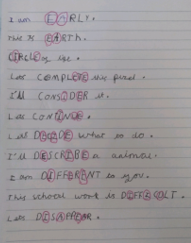 I am EARLY.
This is EARTH.
CIRCLE of life.
Lets COMPLETE this
I'll CONSIDER it.
Lets
Let DECIDE what to do.
I'll DESCRIBE a animal.
I am DIFFERENT to you.
This school work is DIFFICULT.
Lets DISAPPEAR.